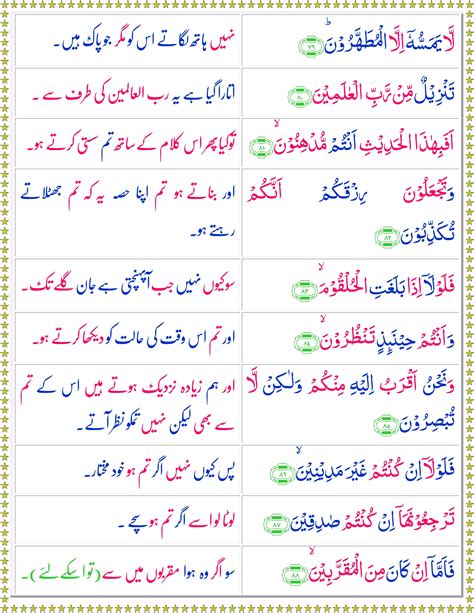 لَّا یَمَسُّهٗۤ اِلَّا الْمُطَهَّرُوْنَؕ ﴿۷۹﴾
نہیں ہاتھ لگاتے اس کو مگر جو پاک ہیں۔
تَنْزِیْلٌ مِّنْ رَّبِّ الْعٰلَمِیْنَ ﴿۸۰﴾
اتارا گیا ہے یہ رب العالمین کی طرف سے ۔
اَفَبِهٰذَا الْحَدِیْثِ اَنْتُمْ مُّدْهِنُوْنَۙ ﴿۸۱﴾
تو کیا پھر اس کلام کے ساتھ تم سستی کرتے ہو۔
وَتَجْعَلُوْنَ رِزْقَكُمْ اَنَّكُمْ
تُكَذِّبُوْنَ ﴿۸۲﴾
اور بناتے ہو تم اپنا حصہ یہ کہ تم جھٹلاتے
رہتے ہو۔
فَلَوْلَاۤ اِذَا بَلَغَتِ الْحُلْقُوْمَۙ ﴿۸۳﴾
سو کیوں نہیں جب آپہنچتی ہے جان گلے تک۔
وَاَنْتُمْ حِیْنَىِٕذٍ تَنْظُرُوْنَۙ ﴿۸۴﴾
اور تم اس وقت کی حالت کو دیکھا کرتے ہو۔
وَنَحْنُ اَقْرَبُ اِلَیْهِ مِنْكُمْ وَلٰكِنْ لَّا
تُبْصِرُوْنَ ﴿۸۵﴾
اور ہم زیادہ نزدیک ہوتے ہیں اس کے تم
سے بھی لیکن نہیں تمکو نظر آتے۔
فَلَوْلَاۤ اِنْ كُنْتُمْ غَیْرَ مَدِیْنِیْنَۙ ﴿۸۶﴾
پس کیوں نہیں اگر تم ہو خود مختار۔
تَرْجِعُوْنَهَاۤ اِنْ كُنْتُمْ صٰدِقِیْنَ ﴿۸۷﴾
لوٹا لو اسے اگر تم ہو سچے ۔
فَاَمَّاۤ اِنْ كَانَ مِنَ الْمُقَرَّبِیْنَۙ ﴿۸۸﴾
سو اگر وہ ہوا مقربوں میں سے (تو اسکے لئے)۔